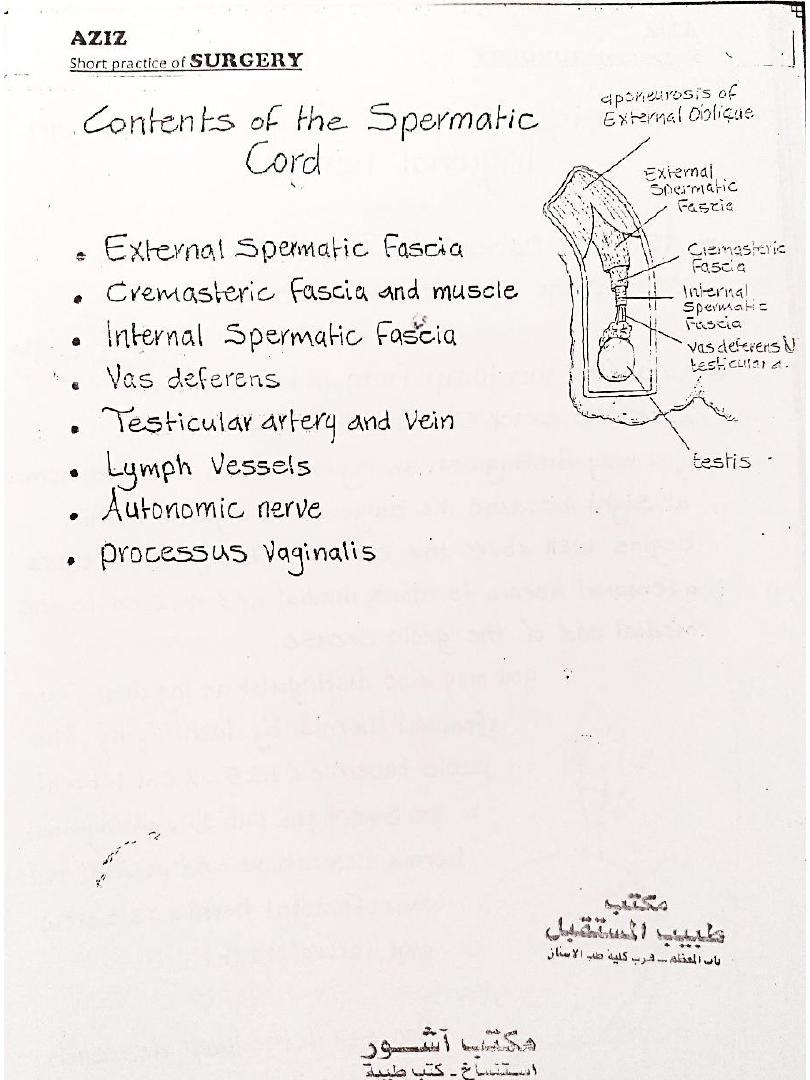 AZIZ
Short practice of SURGERY
Contents of the Spermatic
Cord
• External Spermatic Fascia
• Cremasteric Fascia and muscle
• Internal Spermatic Fascia
• Vas deferens
• Testicular artery and vein
• Lymph Vessels
• Autonomic nerve
• processus Vaginalis
aponeurosis of
External Oblique
External
Spermatic
Fascia
Cremasteric
Fascia
Internal
Spermatic
Fascia
Vas deferens
testicular a.
testis
مكتب
طبيب المستقبل
باب المعظم - قرب كلية طب الاسنان
مكتب آشور
استنساخ - كتب طبية